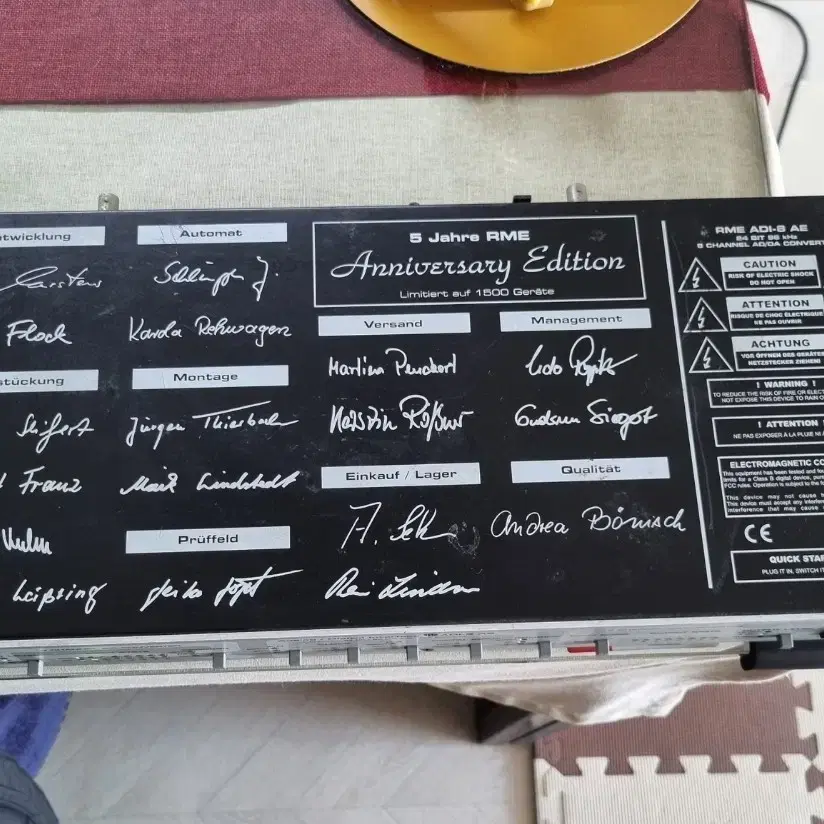 twicklung
Carsten
Flock
stückung
Seifert
Franz
Automat
Karola Rehwagen
Montage
Jürgen Thierbach
Maik Lindstedt
Prüffeld
5 Jahre RME
Anniversary Edition
Limitiert auf 1500 Geräte
Versand
Management
Einkauf / Lager
Qualität
Andrea Börnisch
RME ADI-8 AE
24 BIT 96 kHz
8 CHANNEL AD/DA CONVERT
CAUTION
RISK OF ELECTRIC SHOCK
DO NOT OPEN
ATTENTION
RISQUE DE CHOC ÉLECTRIQUE
NE PAS OUVRIR
ACHTUNG
VOR ÖFFNEN DES GERÄTES
NETZSTECKER ZIEHEN!
! WARNING !
TO REDUCE THE RISK OF FIRE OR ELECT
NOT EXPOSE THIS DEVICE TO RAIN O
! ATTENTION !
NE PAS EXPOSER À LA PLUIE NI
ELECTROMAGNETIC CO
This equipment has been tested and fou
limits for a Class B digital device, pur
FCC rules. Operation is subject to the fo
This device may not cause
This device must accept any interfer
interference that may cause
CE
QUICK STAR
PLUG IT IN, SWITCH IT